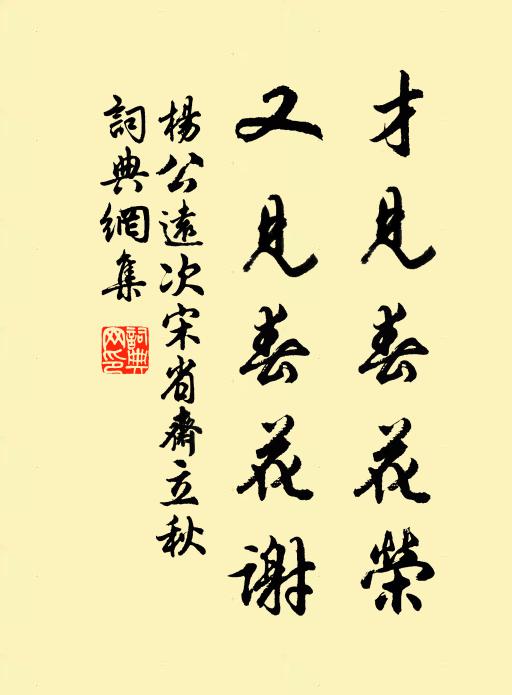 才見春花榮
又見春花謝
楊公遠次宋省齋立秋
詞典網集
詞典網印